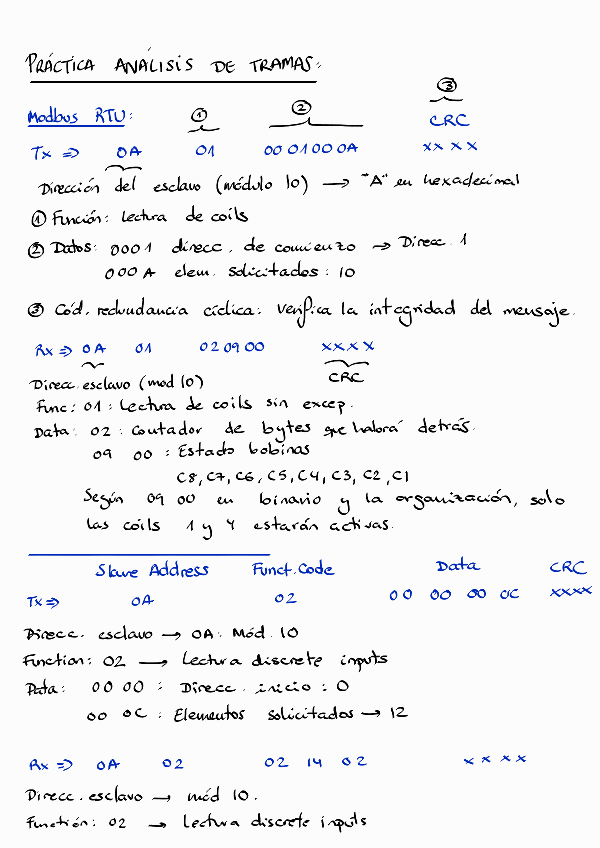 PRÁCTICA ANÁLISIS DE TRAMAS:
③
Modbus RTU: ① ② CRC
Tx => 0A 01 00 01 00 0A xx xx
Dirección del esclavo (módulo 10) → "A" en hexadecimal
① Función: Lectura de coils
② Datos: 0001 direcc. de comienzo → Direcc. 1
000A elem. solicitados: 10
③ Cód. redundancia cíclica: Verifica la integridad del mensaje.
Rx => 0A 01 02 09 00 xxxx
Direcc. esclavo (mod 10) CRC
Func: 01: Lectura de coils sin excep.
Data: 02: Contador de bytes que habrá detrás.
09 00: Estado bobinas
C8, C7, C6, C5, C4, C3, C2, C1
Según 09 00 en binario y la organización, solo
las coils 1 y 4 estarán activas.
Slave Address Funct. Code Data CRC
Tx => 0A 02 00 00 00 0C xxxx
Direcc. esclavo → 0A: Mód. 10
Function: 02 → Lectura discrete inputs
Data: 00 00: Direcc. inicio: 0
00 0C: Elementos solicitados → 12
Rx => 0A 02 02 14 02 x x x x
Direcc. esclavo → mód 10.
Functión: 02 → Lectura discrete inputs